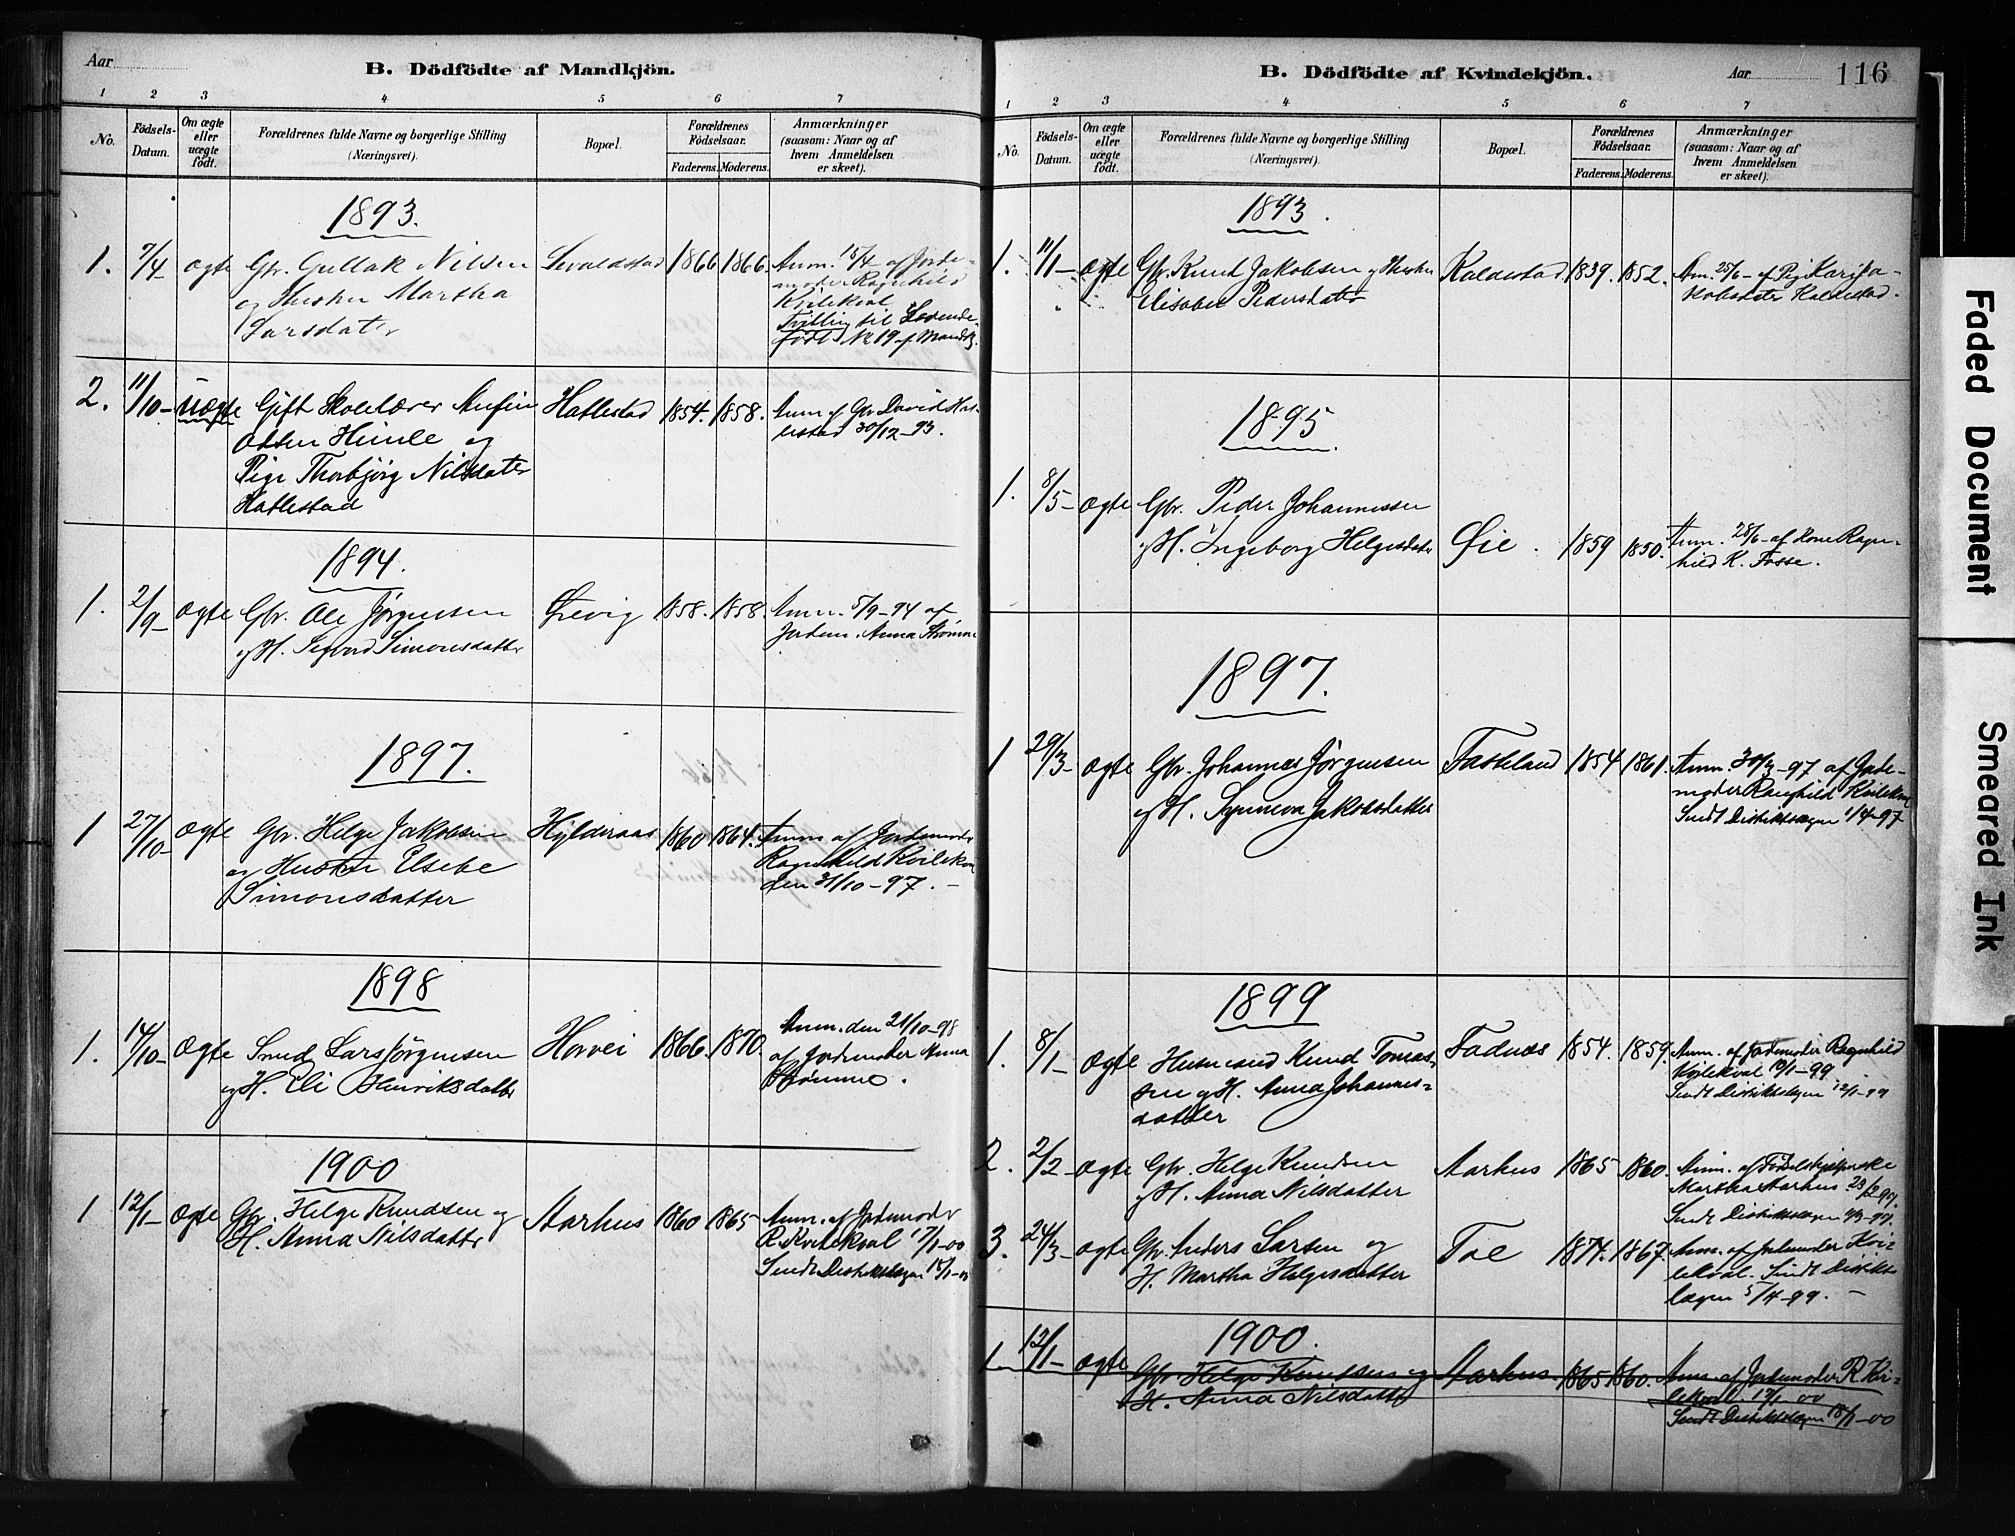 Aar
B. Dödfödte af Mandkjön.
1 2 3 4 5 6 7
No.
Födsels-Datum.
Om ægte eller uægte født.
Forældrenes fulde Navne og borgerlige Stilling (Næringsvei).
Bopæl.
Forældrenes Födselsaar.
Faderens. Moderens.
Anmærkninger (saasom: Naar og af hvem Anmeldelsen er skeet).
1893.
1. 7/4 ægte Gbr. Gullak Nilsen Sevaldstad 1866 1866. Anm. 15/4 af Jorde-
og Hustru Martha moder Ragnhild
Larsdatter Kvilekval
Tvilling til Levende-
født No 19 af Mandkj.
2. 11/10- uægte Gift Skolelærer Anfin Hatlestad 1854. 1858. Anm af Gbr David Hat-
Olsen Himle og lestad 30/12-93.
Pige Thorbjørg Nilsdatter
Hatlestad
1894.
1. 2/9- ægte Gbr. Ole Jørgensen Grevig 1858. 1858. Anm. 5/9-94 af
og H. Simonsdatter Jordm. Anna Strømme
1897.
1 27/10- ægte Gbr. Helge Jakobsen Hylderaas 1860 1864. Anm af Jordemoder
og Hustru Elsebe Ragnhild Kvilekval
Simonsdatter den 31/10-97. -
1898
1. 14/10- ægte Smed Lars Jørgensen Horvei 1866. 1870. Anm. den 21/10-98
og H. Eli Henriksdatter af Jordemoder Anna
Strømme.
1900
1 12/1- ægte Gbr. Helge Knudsen og Aarhus 1860 1865 Anm. af Jordemoder
H. Anna Nilsdatter R. Kvilekval 17/1-00
Sendt Distriktslægen 18/1-00
B. Dödfödte af Kvindekjön.
Aar 116
1 2 3 4 5 6 7
No.
Födsels-Datum.
Om ægte eller uægte født.
Forældrenes fulde Navne og borgerlige Stilling (Næringsvei).
Bopæl.
Forældrenes Födselsaar.
Faderens. Moderens.
Anmærkninger (saasom: Naar og af hvem Anmeldelsen er skeet).
1893.
1. 11/1- ægte Gbr. Knud Jakobsen og Hustru Kaldestad 1839. 1852. Anm. 25/6- af Pig Kari Ja-
Elisabet Pedersdatter kobsdatter Kaldestad.
1895.
1. 8/5- ægte Gbr. Peder Johannessen
og H. Ingeborg Helgesdatter Øie. 1859 1850. Anm. 28/6- af Kone Ragn-
hild K. Fosse.
1897.
1 29/3- ægte Gbr. Johannes Jørgensen Fasteland 1854 1861. Anm. 30/3-97 af Jorde-
og H. Synneva Jakobsdatter moder Ragnhild Kvilekval
Sendt Distriktslægen 1/4-97
1899
1. 8/1- ægte Husmand Knud Tomas- Fadnes 1854. 1859. Anm. af Jordemoder Ragnhild
sen og H. Anna Johannes- Kvilekval 10/1-99
datter Sendt Distriktslægen 12/1-99
2. 2/2- ægte Gbr. Helge Knudsen Aarhus 1865 1860. Anm. af Fødselshjelperske
og H. Anna Nilsdatter Martha Aarhus 23/2-99.
Sendt Distriktslægen 2/3-99.
3. 24/3- ægte Gbr. Anders Larsen og Toe 1871. 1867. Anm. af Jordemoder Kvi-
H. Martha Helgesdatter lekval. Sendt Distrikts
lægen 5/4-99. -
1900.
1 12/1- ægte Gbr. Helge Knudsen og Aarhus 1865 1860. Anm. af Jordemoder R. Kvi-
H. Anna Nilsdatter lekval 17/1 00
Sendt Distriktslægen 18/1-00
Faded Document
Smeared Ink